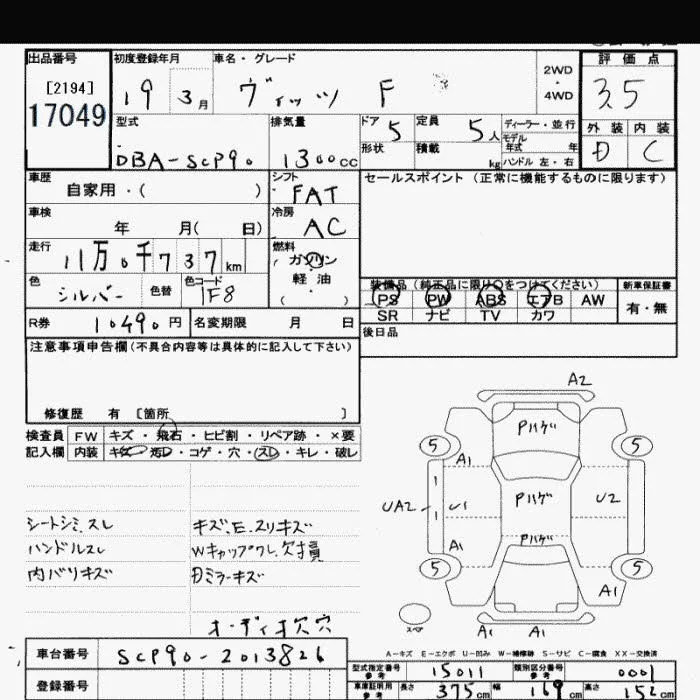 出品番号 初度登録年月 車名・グレード 2WD・4WD 評価点
[2194] 17049 19 3月 ヴィッツ F 3.5
型式 排気量 ドア 5 定員 5人 ディーラー・並行 外装 内装
DBA-SCP90 1300cc 形状 積載 kg モデル年式 年 D C
ハンドル 左・右
車歴 シフト セールスポイント(正常に機能するものに限ります)
自家用・( ) FAT
車検 冷房
年 月( 日) AC
走行 燃料
11万0千737km ガソリン
色 色替 色コード 軽油
シルバー 1F8 ( ・ )
装備品(純正品に限り○をつけてください) 新車保証書
PS PW ABS エアB AW 有・無
SR ナビ TV カワ
R券 10490円 名変期限 月 日 後日品
注意事項申告欄(不具合内容等は具体的に記入して下さい)
修復歴 有 〔箇所 〕
検査員 FW キズ・飛石・ヒビ割・リペア跡・×要
記入欄 内装 キズ・汚レ・コゲ・穴・スレ・キレ・破レ
シートシミ、スレ キズ、E、スリキズ
ハンドルスレ Wキャップワレ、欠損
内バリキズ Dミラーキズ
オーディオ欠 穴
A2
Pハゲ
5 5
A1
UA2 U1 Pハゲ U2
A1 Pハゲ
5 5
A1
スペア A1 A1
A-キズ E-エクボ U-凹み W-補修跡 S-サビ C-腐食 XX-交換済
車台番号 SCP90-2013826
型式指定番号 参考 15011 類別区分番号 参考 0001
登録番号 車庫証明用 参考 長さ 375cm 幅 169cm 高さ 152cm